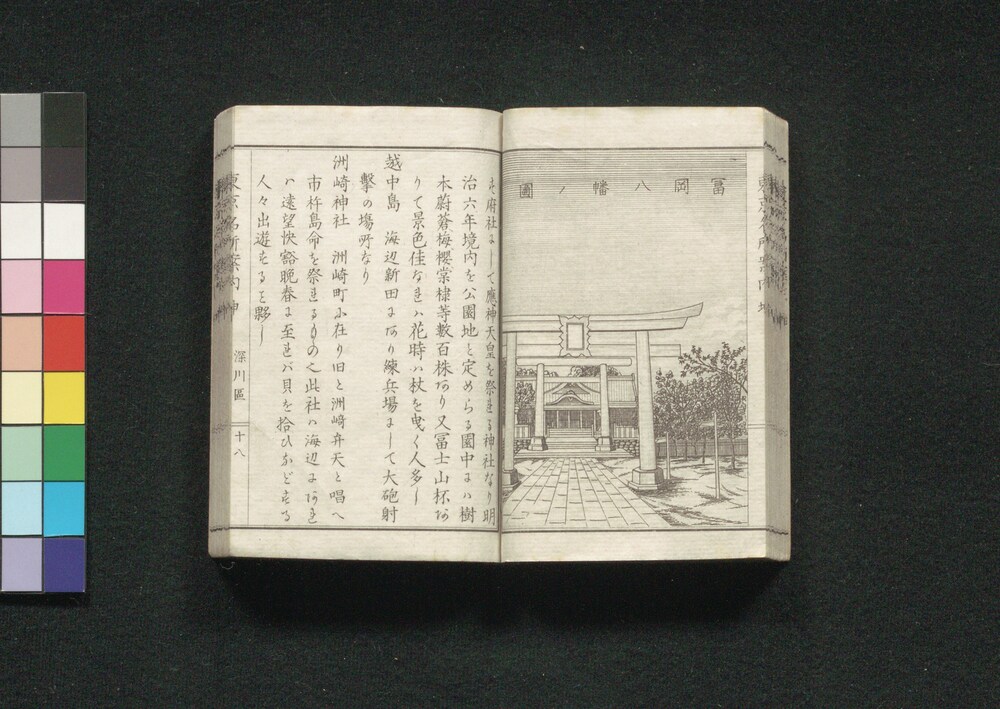 冨岡八幡ノ圖
す府社にして應神天皇を祭れる神社なり明
治六年境内を公園地と定めらる園中には樹
木蔚蒼梅櫻棠棣等數百株あり又冨士山杯あ
りて景色佳なれハ花時ハ杖を曳く人多し
越中島 海辺新田にあり練兵場にして大砲射
擊の塲所なり
洲崎神社 洲崎町に在り旧と洲崎弁天と唱へ
市杵島命を祭れるもの也此社ハ海辺にあれ
ハ遠望快豁晩春に至れバ貝を拾ひなどする
人々出遊するを夥し
東京名所案内
深川區
十八